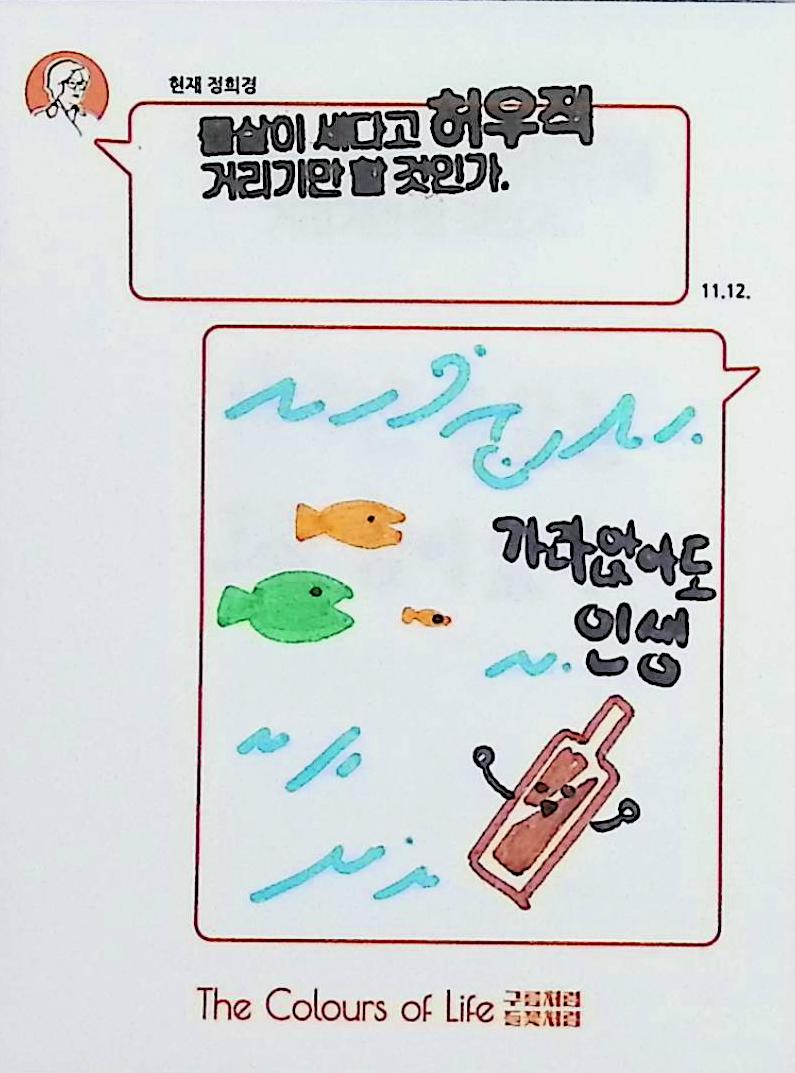 현재 정희경
물살이 세다고 허우적
거리기만 할 것인가.
11.12.
가라앉아도
인생
The Colours of Life 구름처럼
들꽃처럼